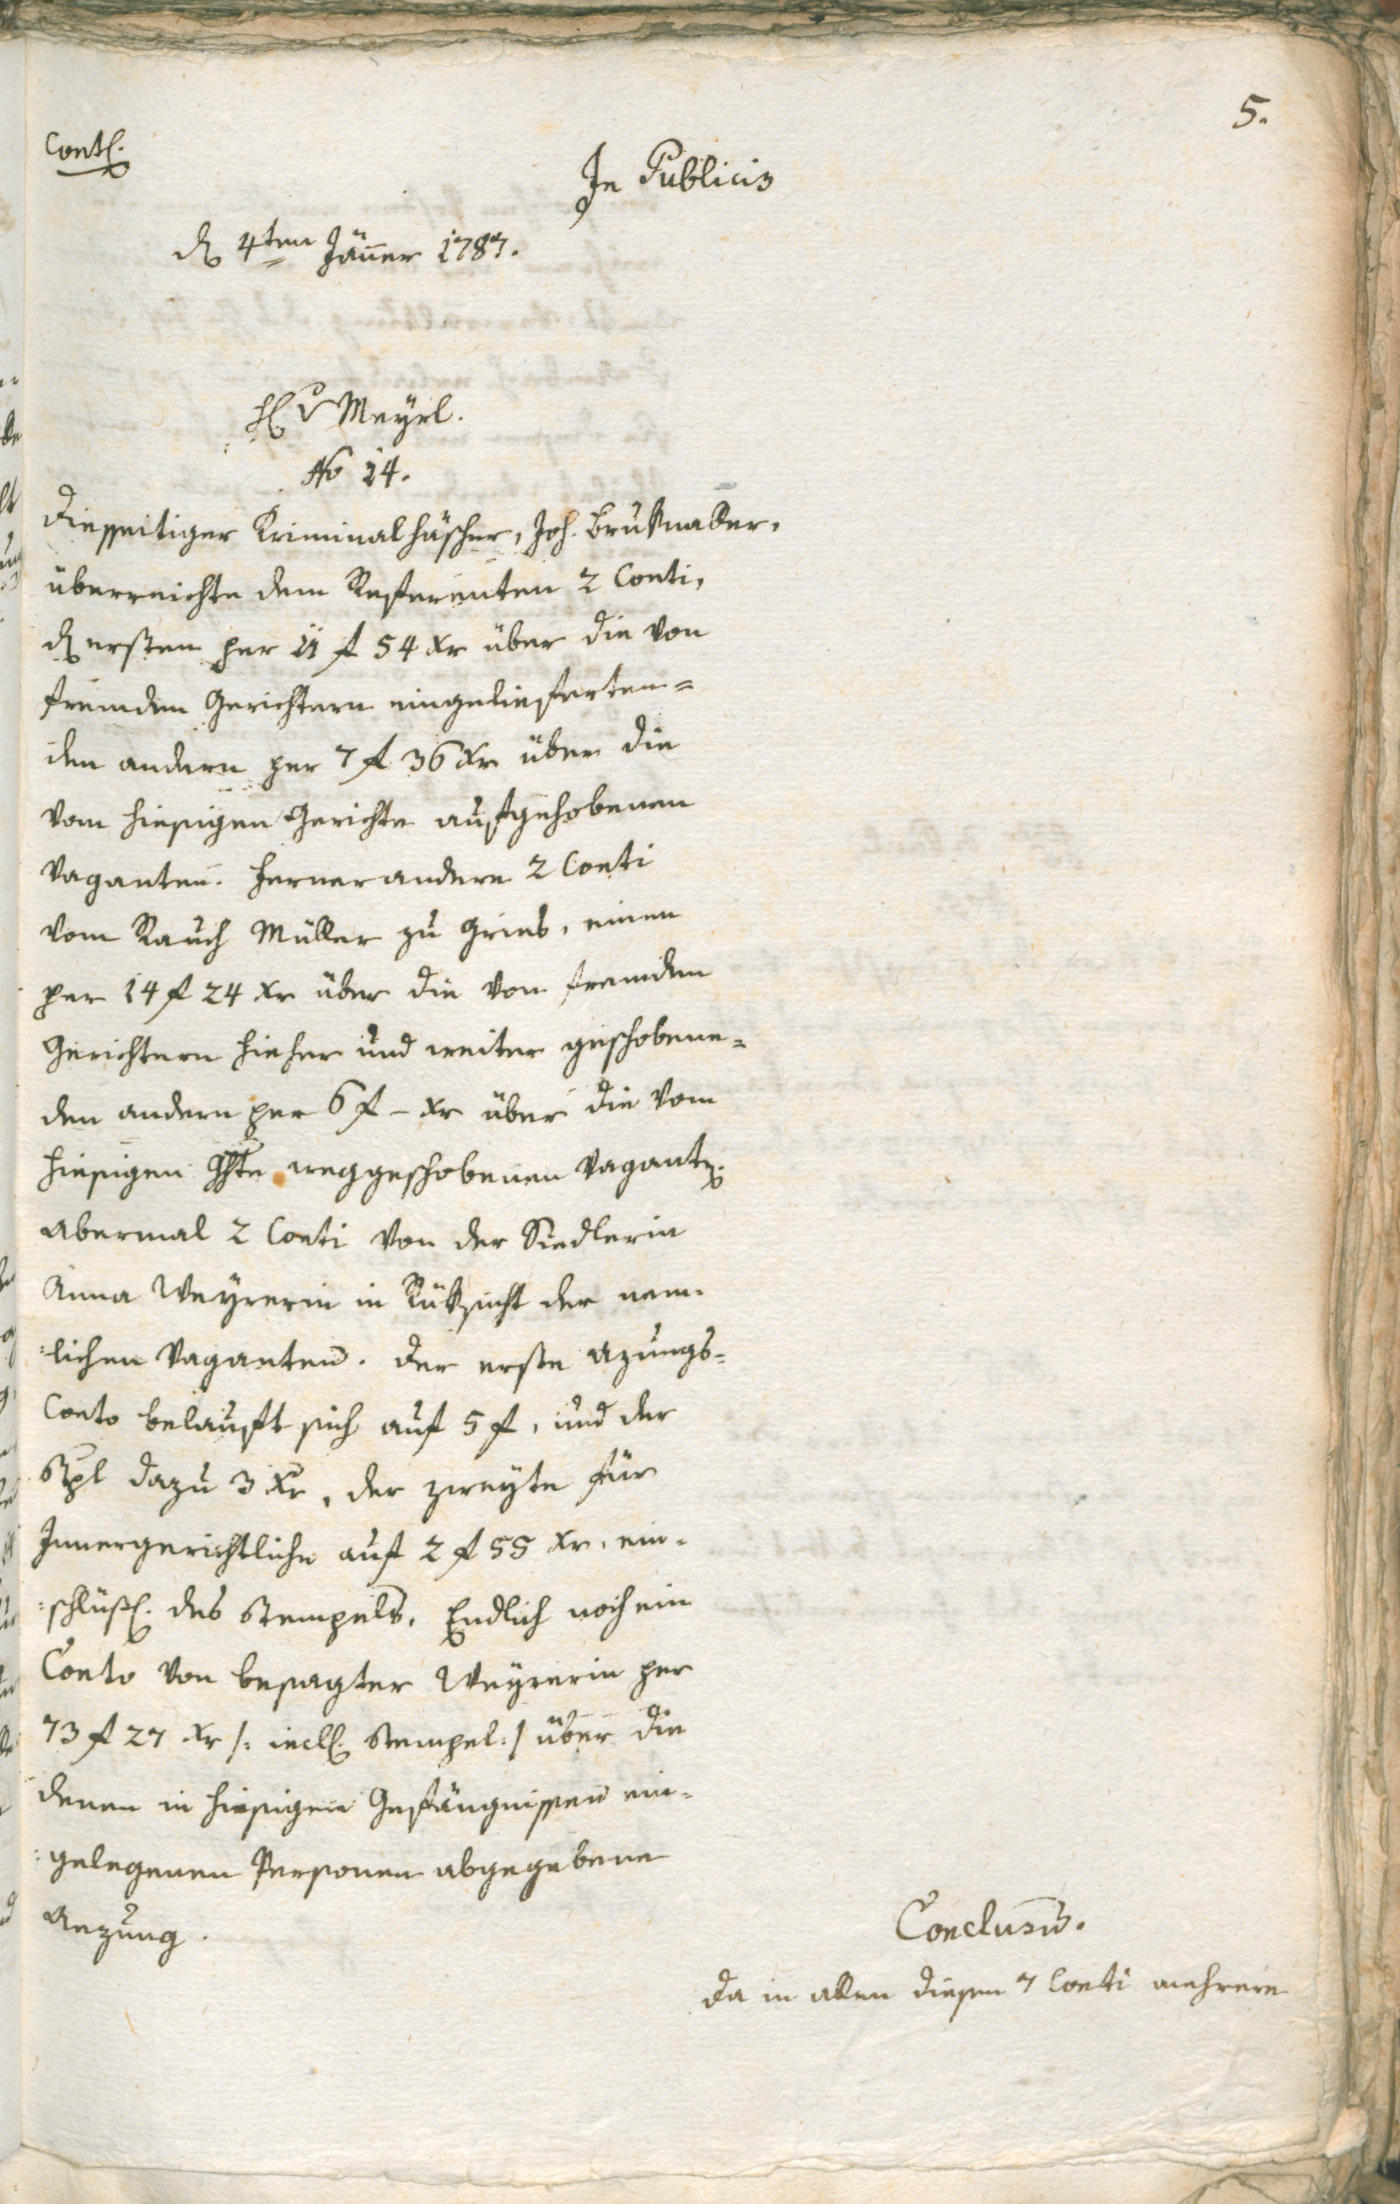 5.
Contl.
In Publicis
den 4ten Jäner 1787.
H v Meyrl.
No 14.
Diesseitiger Kriminalhäscher, Joh. Bruknaker,
überreichte dem Referenten 2 Conti,
den ersten per 11 f 54 xr über die von
fremden Gerichtern eingelieferten=
den andern per 7 f 36 xr über die
vom hiesigen Gerichte aufgehobenen
Vaganten. Ferner andere 2 Conti
vom Rauch Müller zu Gries, einen
per 14 f 24 xr über die von fremden
Gerichtern hieher und weiter geschobene=
den andern per 6 f – xr über die vom
hiesigen Ghte weggeschobenen Vaganten.
abermal 2 Conti von der Siedlerin
Anna Weyrerin in Rüksicht der nem=
:lichen Vaganten. Der erste Azungs=
Conto belauft sich auf 5 f, und der
Stpl dazu 3 xr, der zweyte für
Innergerichtliche auf 2 f 55 xr, ein=
:schlüßl. des Stempels. Endlich noch ein
Conto von besagter Weyrerin per
73 f 27 xr /: incl. Stempel :/ über die
denen in hiesigen Gefängnissen ein=
:gelegenen Personen abgegebene
Anzung.
Conclusum.
Da in allen diesen 7 Conti mehrere